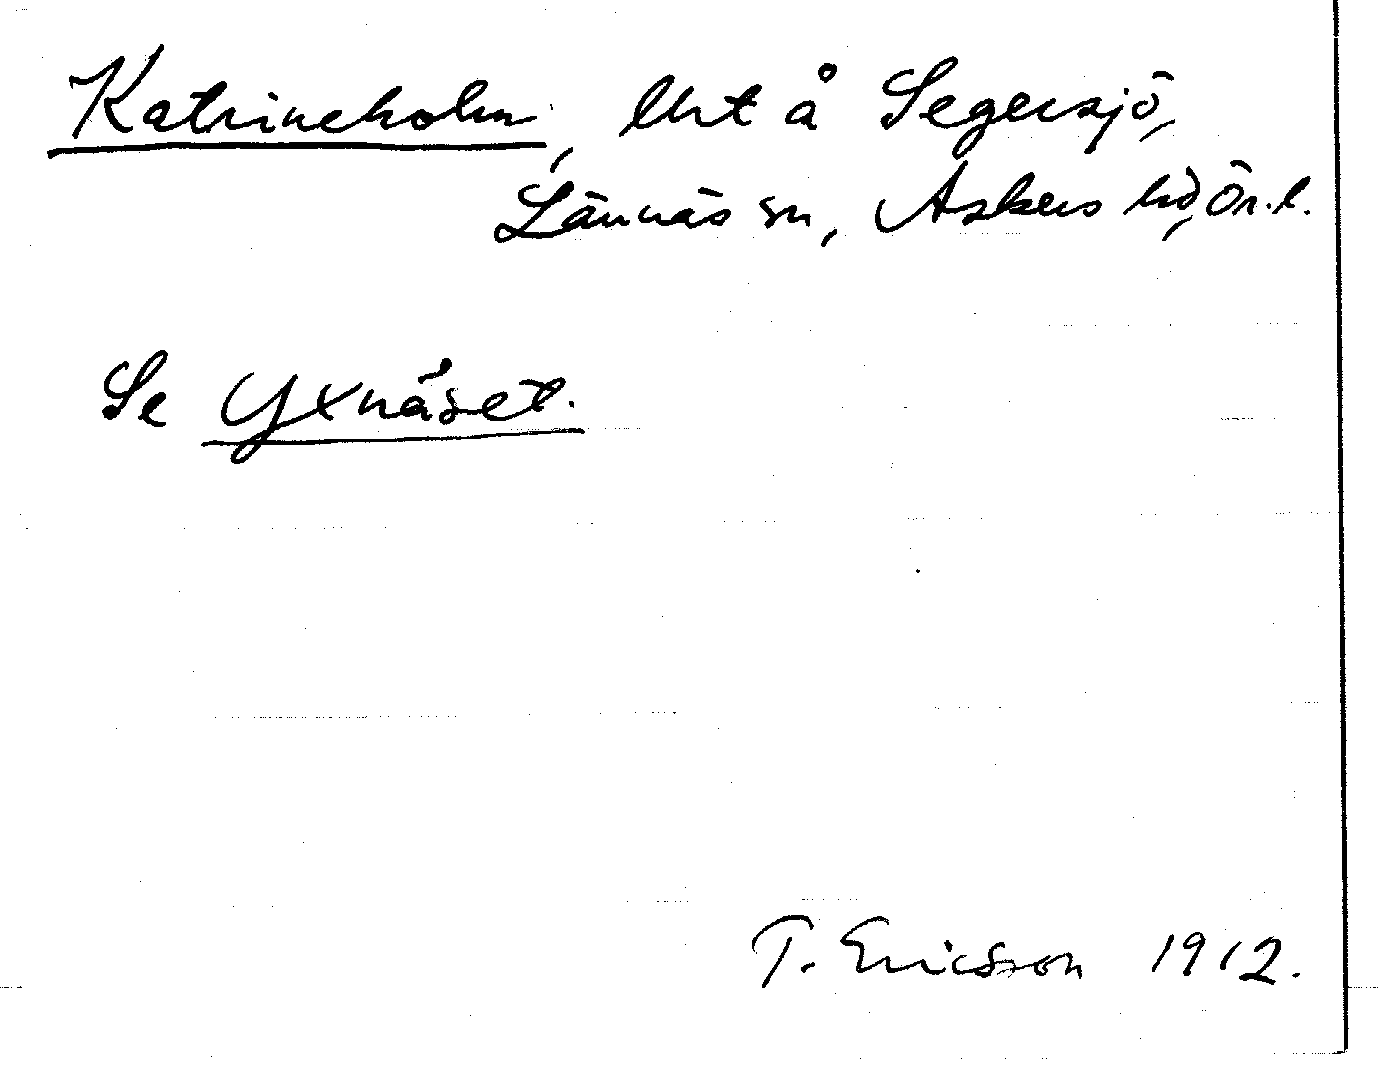 Katrineholm, lht å Segersjö,
Lännäs sn, Askers hd, Ör. l.
Se Yxnäset.
T. Ericsson 1912.